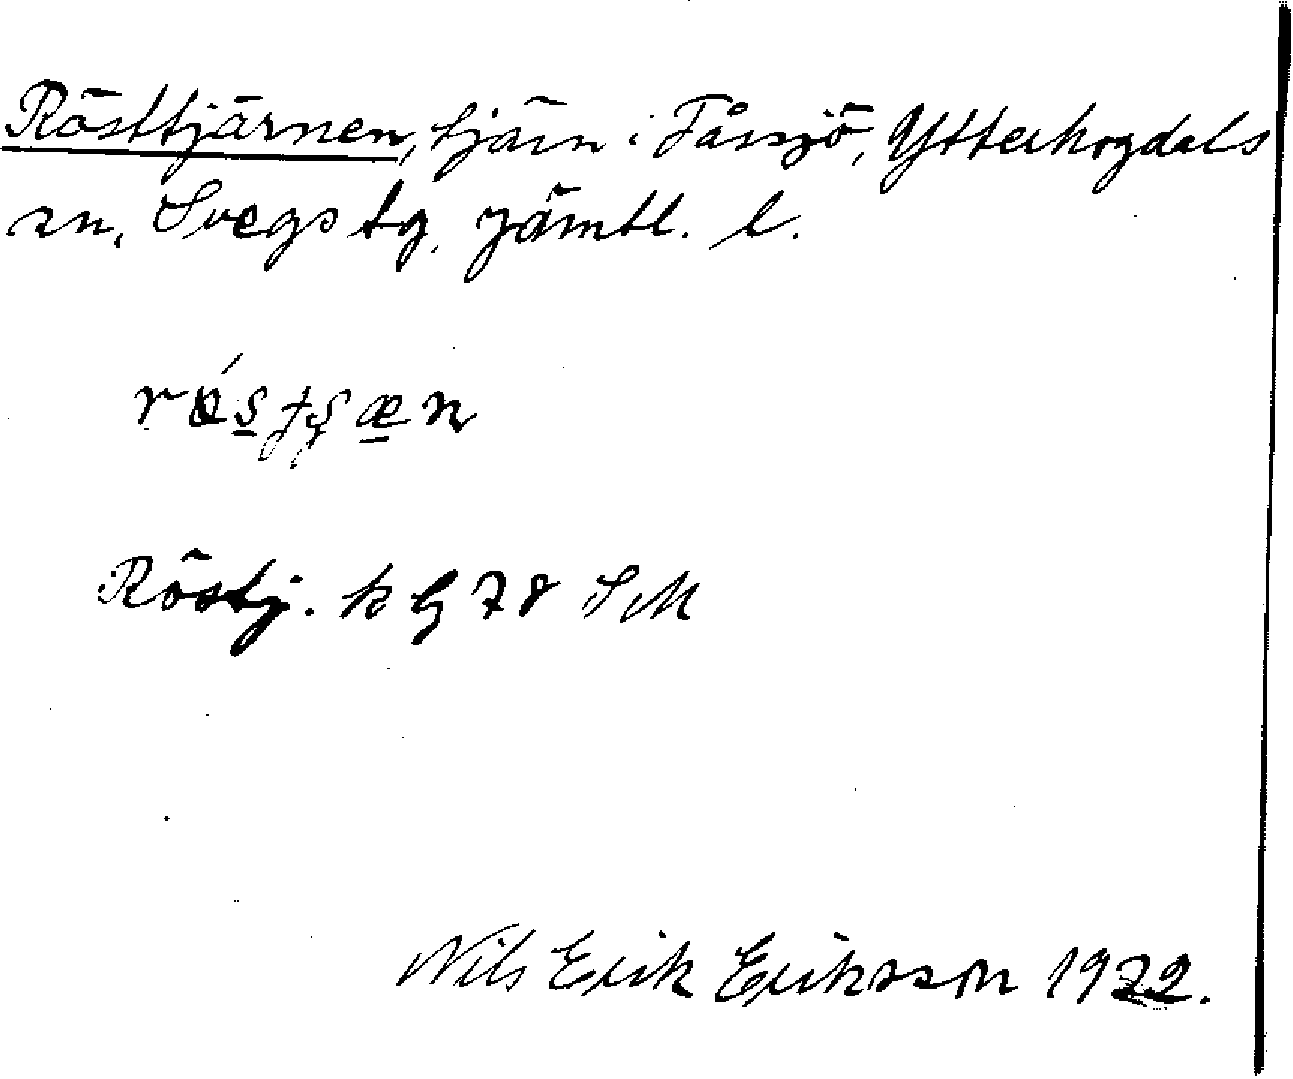 Rösttjärnen, tjärn i Fåssjö, Ytterhogdals
sn, Svegs tg. Jämtl. l.
Röstj. k G 78 SM
Nils Erik Eriksson 1922.